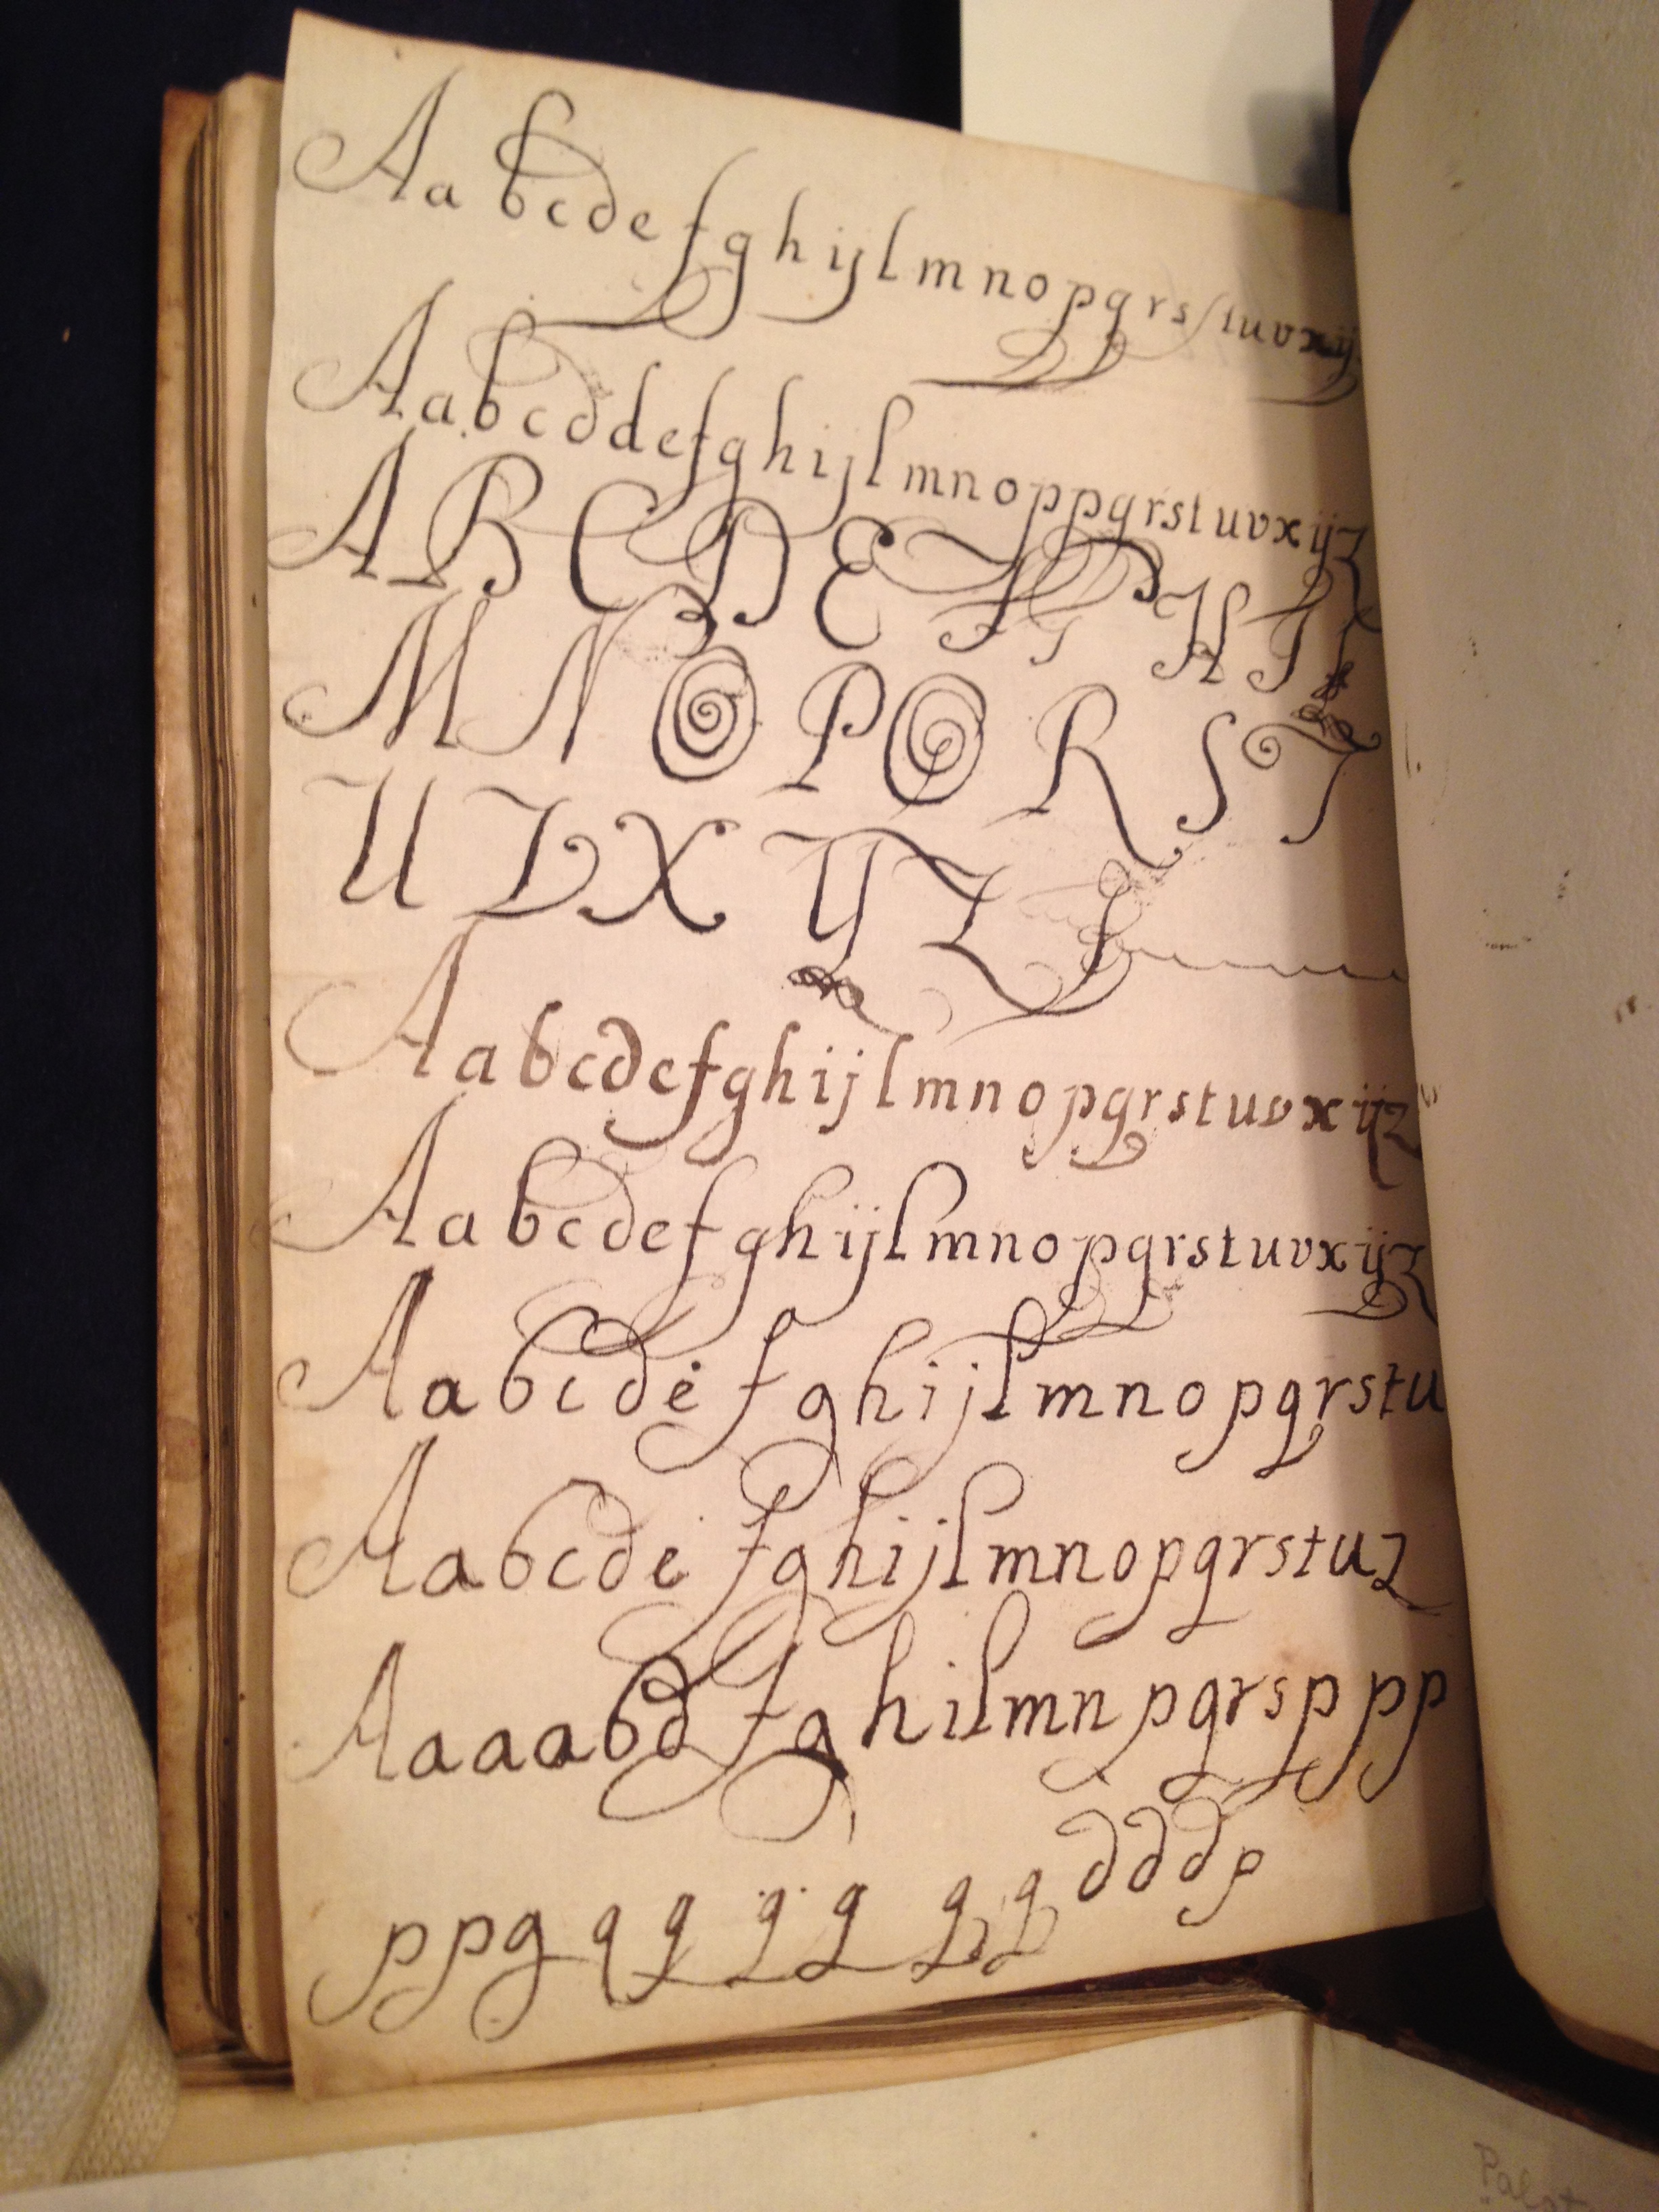 A a b c d e f g h ij l m n o p q r s ſ t u v x ij
A a b c d d e f g h i j l m n o p p q r s t u v x ij z
A B C D E F G H I L
M N O P Q R S T
U V X Y Z
A a b c d e f g h i j l m n o p q r s t u v x ij z
A a b c d e f g h ij l m n o p q r s t u v x ij z
A a b c d e f g h i j l m n o p q r s t u
A a b c d e f g h i j l m n o p q r s t u z
A a a a b d f g h i l m n p q r s p p p
p p g q q q q q q d d d p